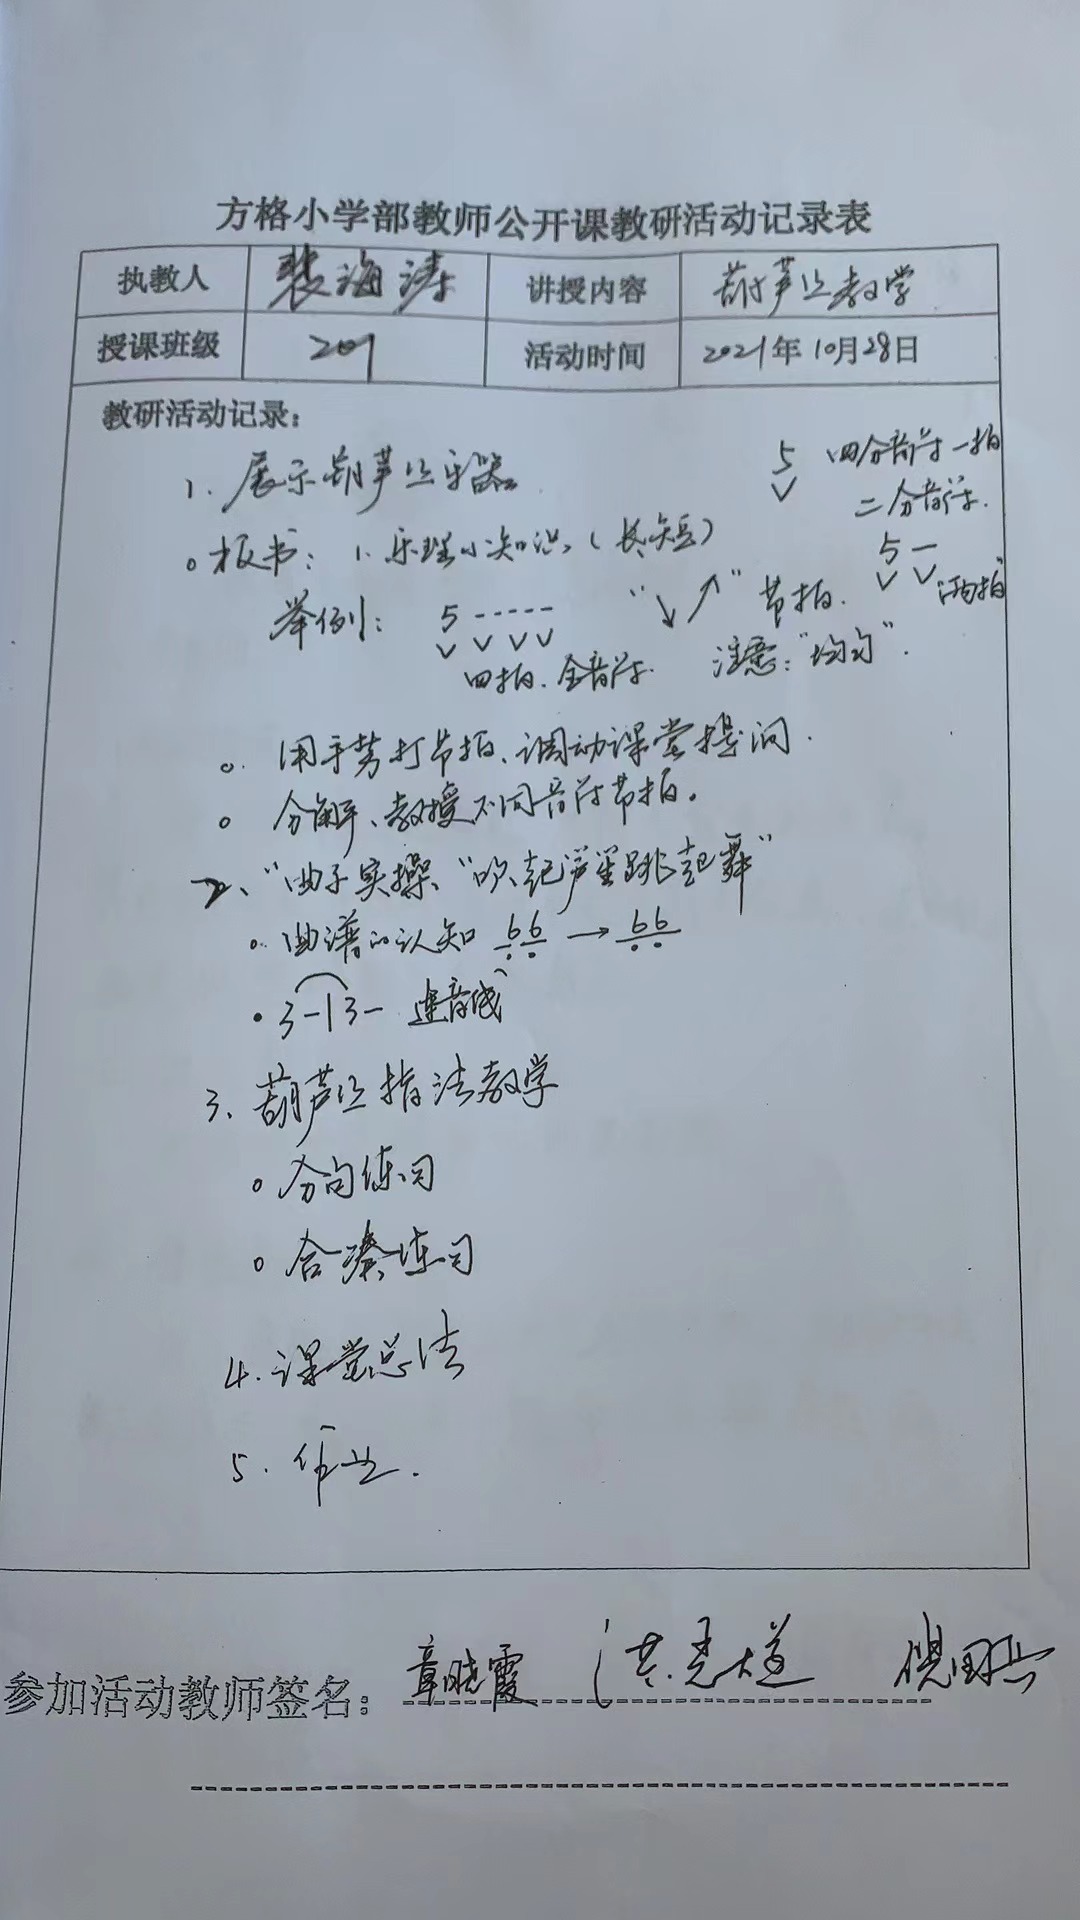 方格小学部教师公开课教研活动记录表
执教人 裴海涛 讲授内容 葫芦丝教学
授课班级 201 活动时间 2021年10月28日
教研活动记录：
1. 展示葫芦丝乐器
5 四分音符一拍
二分音符.
。板书：1. 乐理小知识（长短）
5 —
"两拍"
举例：5 -----
"↘↗"节拍.
四拍.全音符.
注意："均匀".
。用手势打节拍、调动课堂提问.
。分解、教授不同音符节拍。
2、"曲子实操、"吹起芦笙跳起舞"
。曲谱的认知 66 → 66
• 3-|3- 连音线
3、葫芦丝指法教学
。分句练习
。合凑练习
4. 课堂总结
5. 作业.
参加活动教师签名： 章晓霞